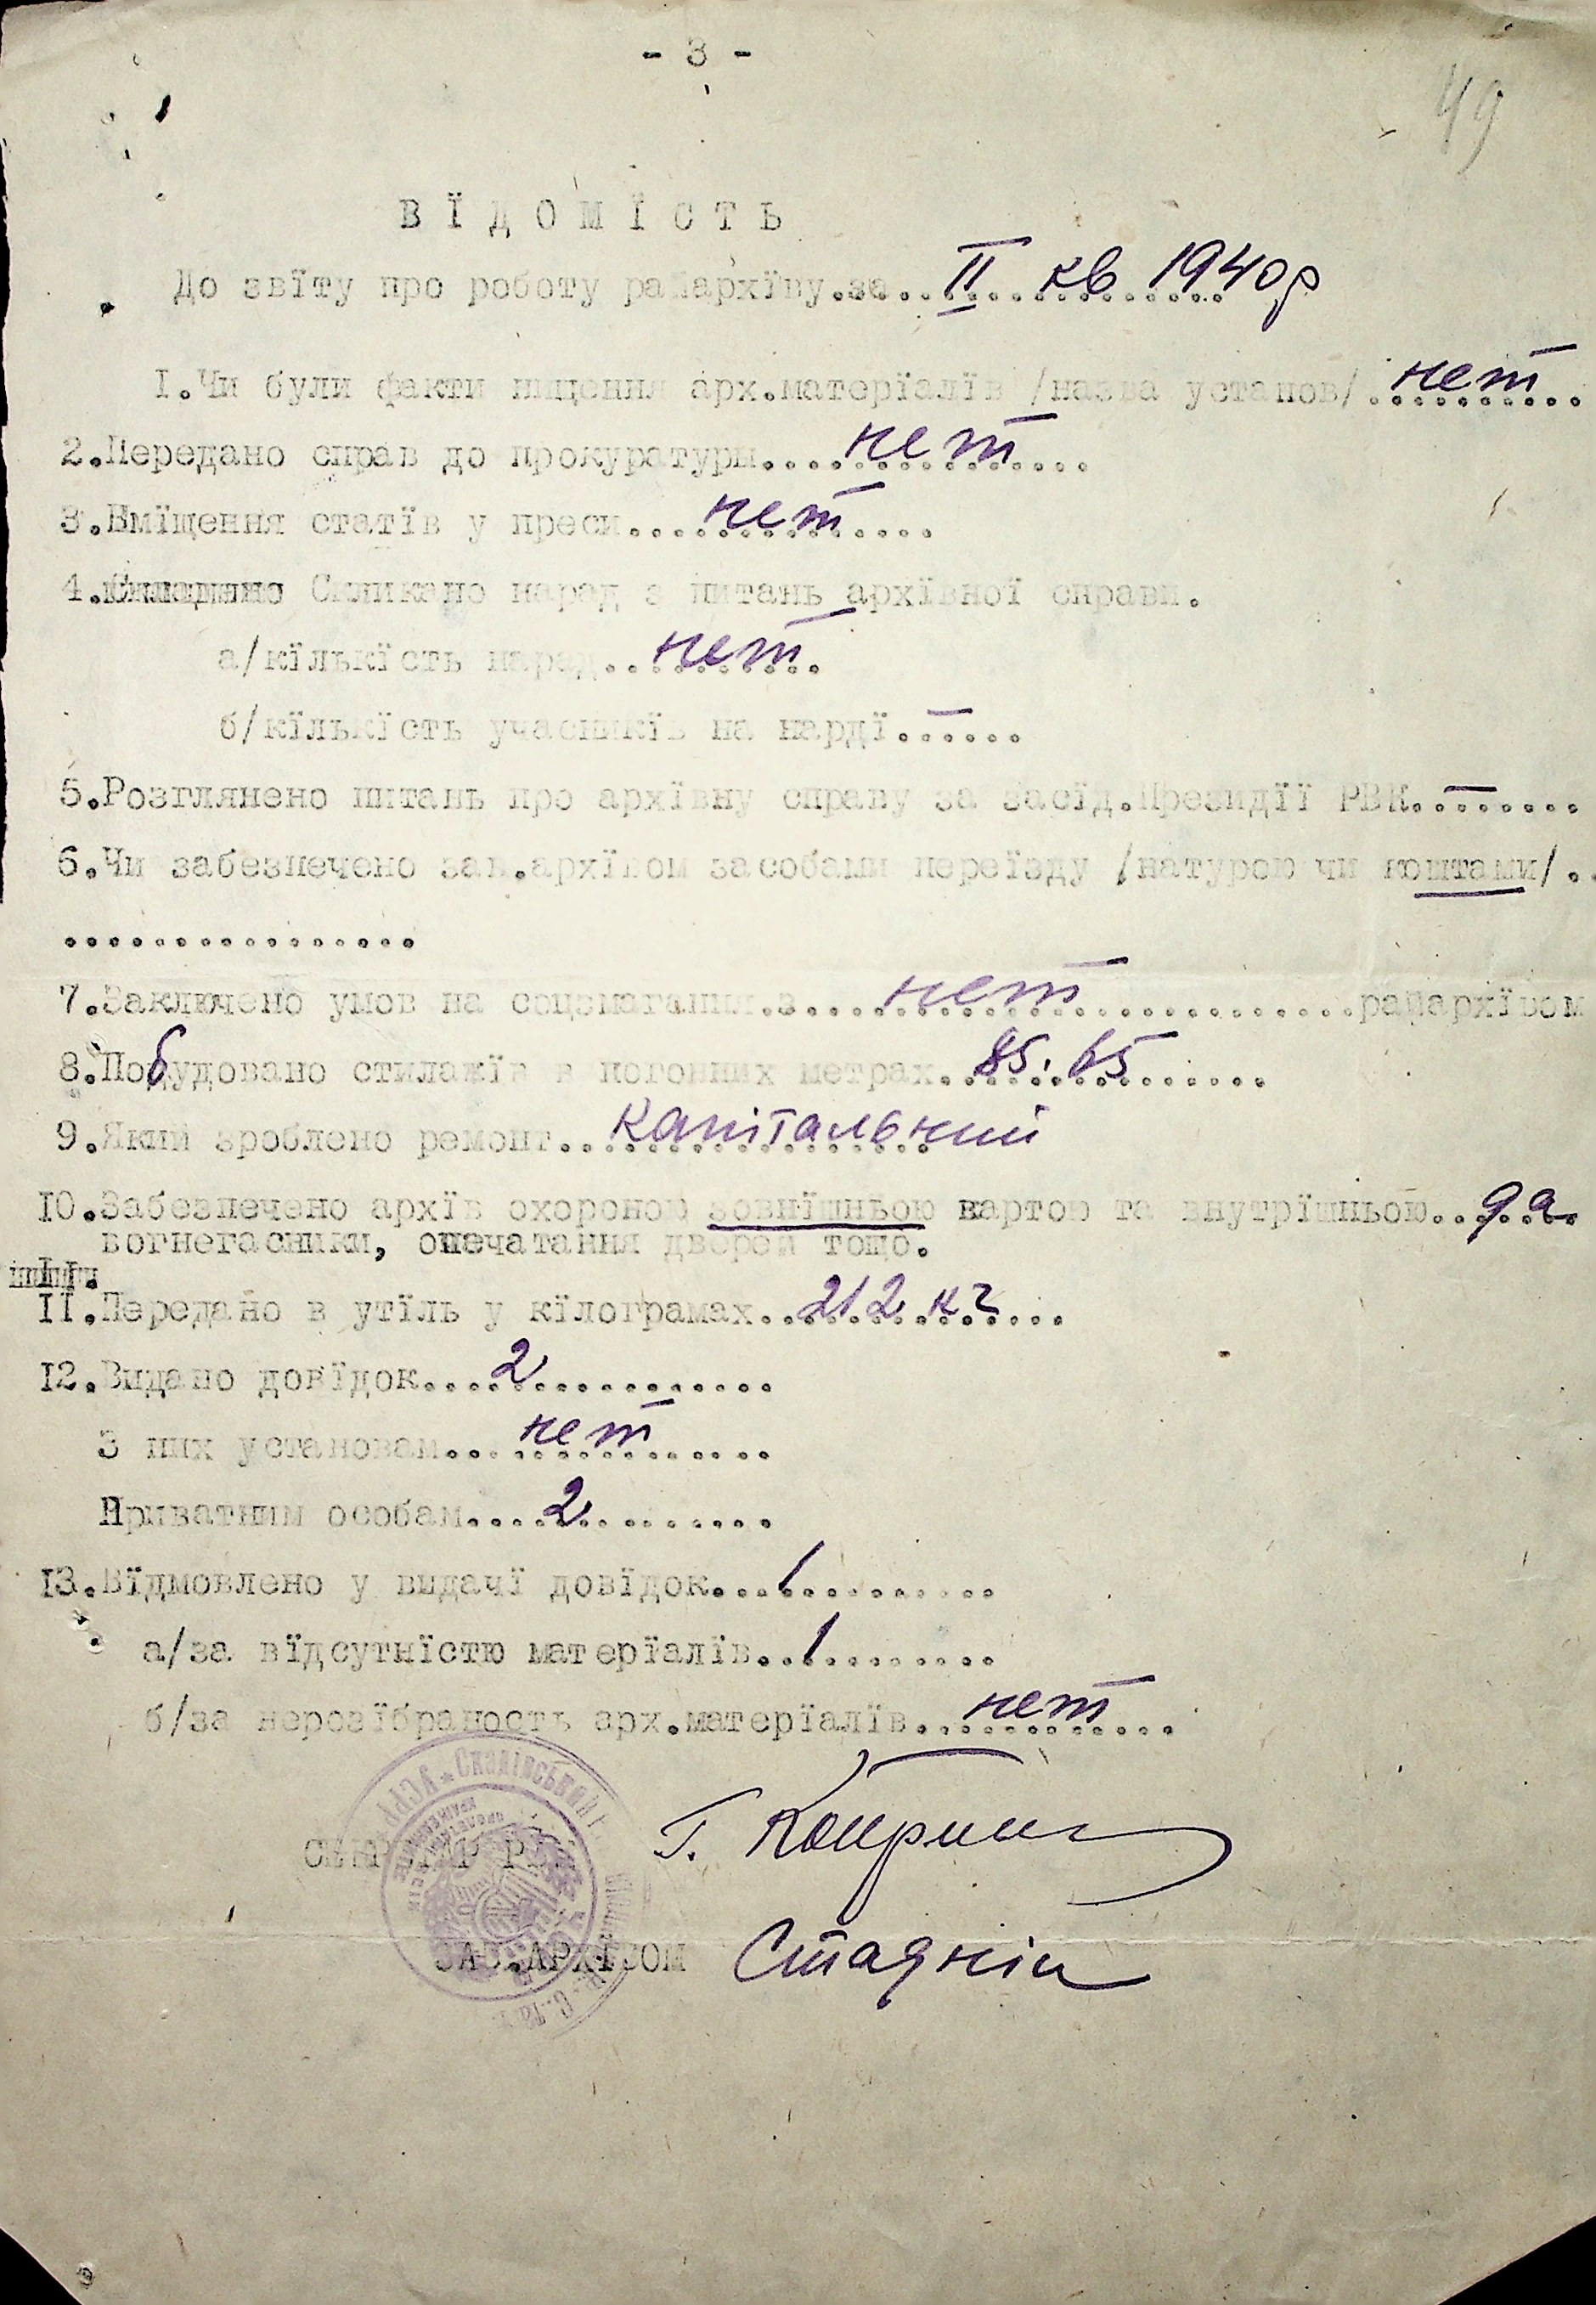 - 3 -
49
ВЇДОМЇСТЬ
До звїту про роботу райархїву.за.. II кв 1940р
I.Чи були факти нищення арх.матерїалїв /назва установ/.нет
2.Передано справ до прокуратури....нет
3.Вмїщення статїв у преси....нет....
4. Скликано нарад з питань архївної справи.
а/кїлькїсть нарад..нет.
б/кїлькїсть учасникїв на нардї.—.....
5.Розглянено питань про архївну справу за засїд.Президїї РВК.—......
6.Чи забезпечено зав.архївом засобами переїзду /натурою чи коштами/..
.................
7.Заключено умов на соцзмагання.з....нет...............райархївом
8.Побудовано стилажїв в погонних метрах.85.65......
9.Який зроблено ремонт..капітальний
10.Забезпечено архїв охороною зовнїшньою вартою та внутрїшньою..да
вогнегасники, опечатання дверей тощо.
II.
II.Передано в утїль у кїлограмах..212 кг...
12.Видано довїдок....2............
З них установам...нет.....
Приватним особам....2.........
13.Вїдмовлено у видачї довїдок...1..........
а/за вїдсутнїстю матерїалїв..1........
б/за нерозїбраность арх.матерїалїв..нет...
УСРР * Скадівський
СЕКРЕТАР РВК Г.
ЗАВ.АРХЇВОМ Стадній